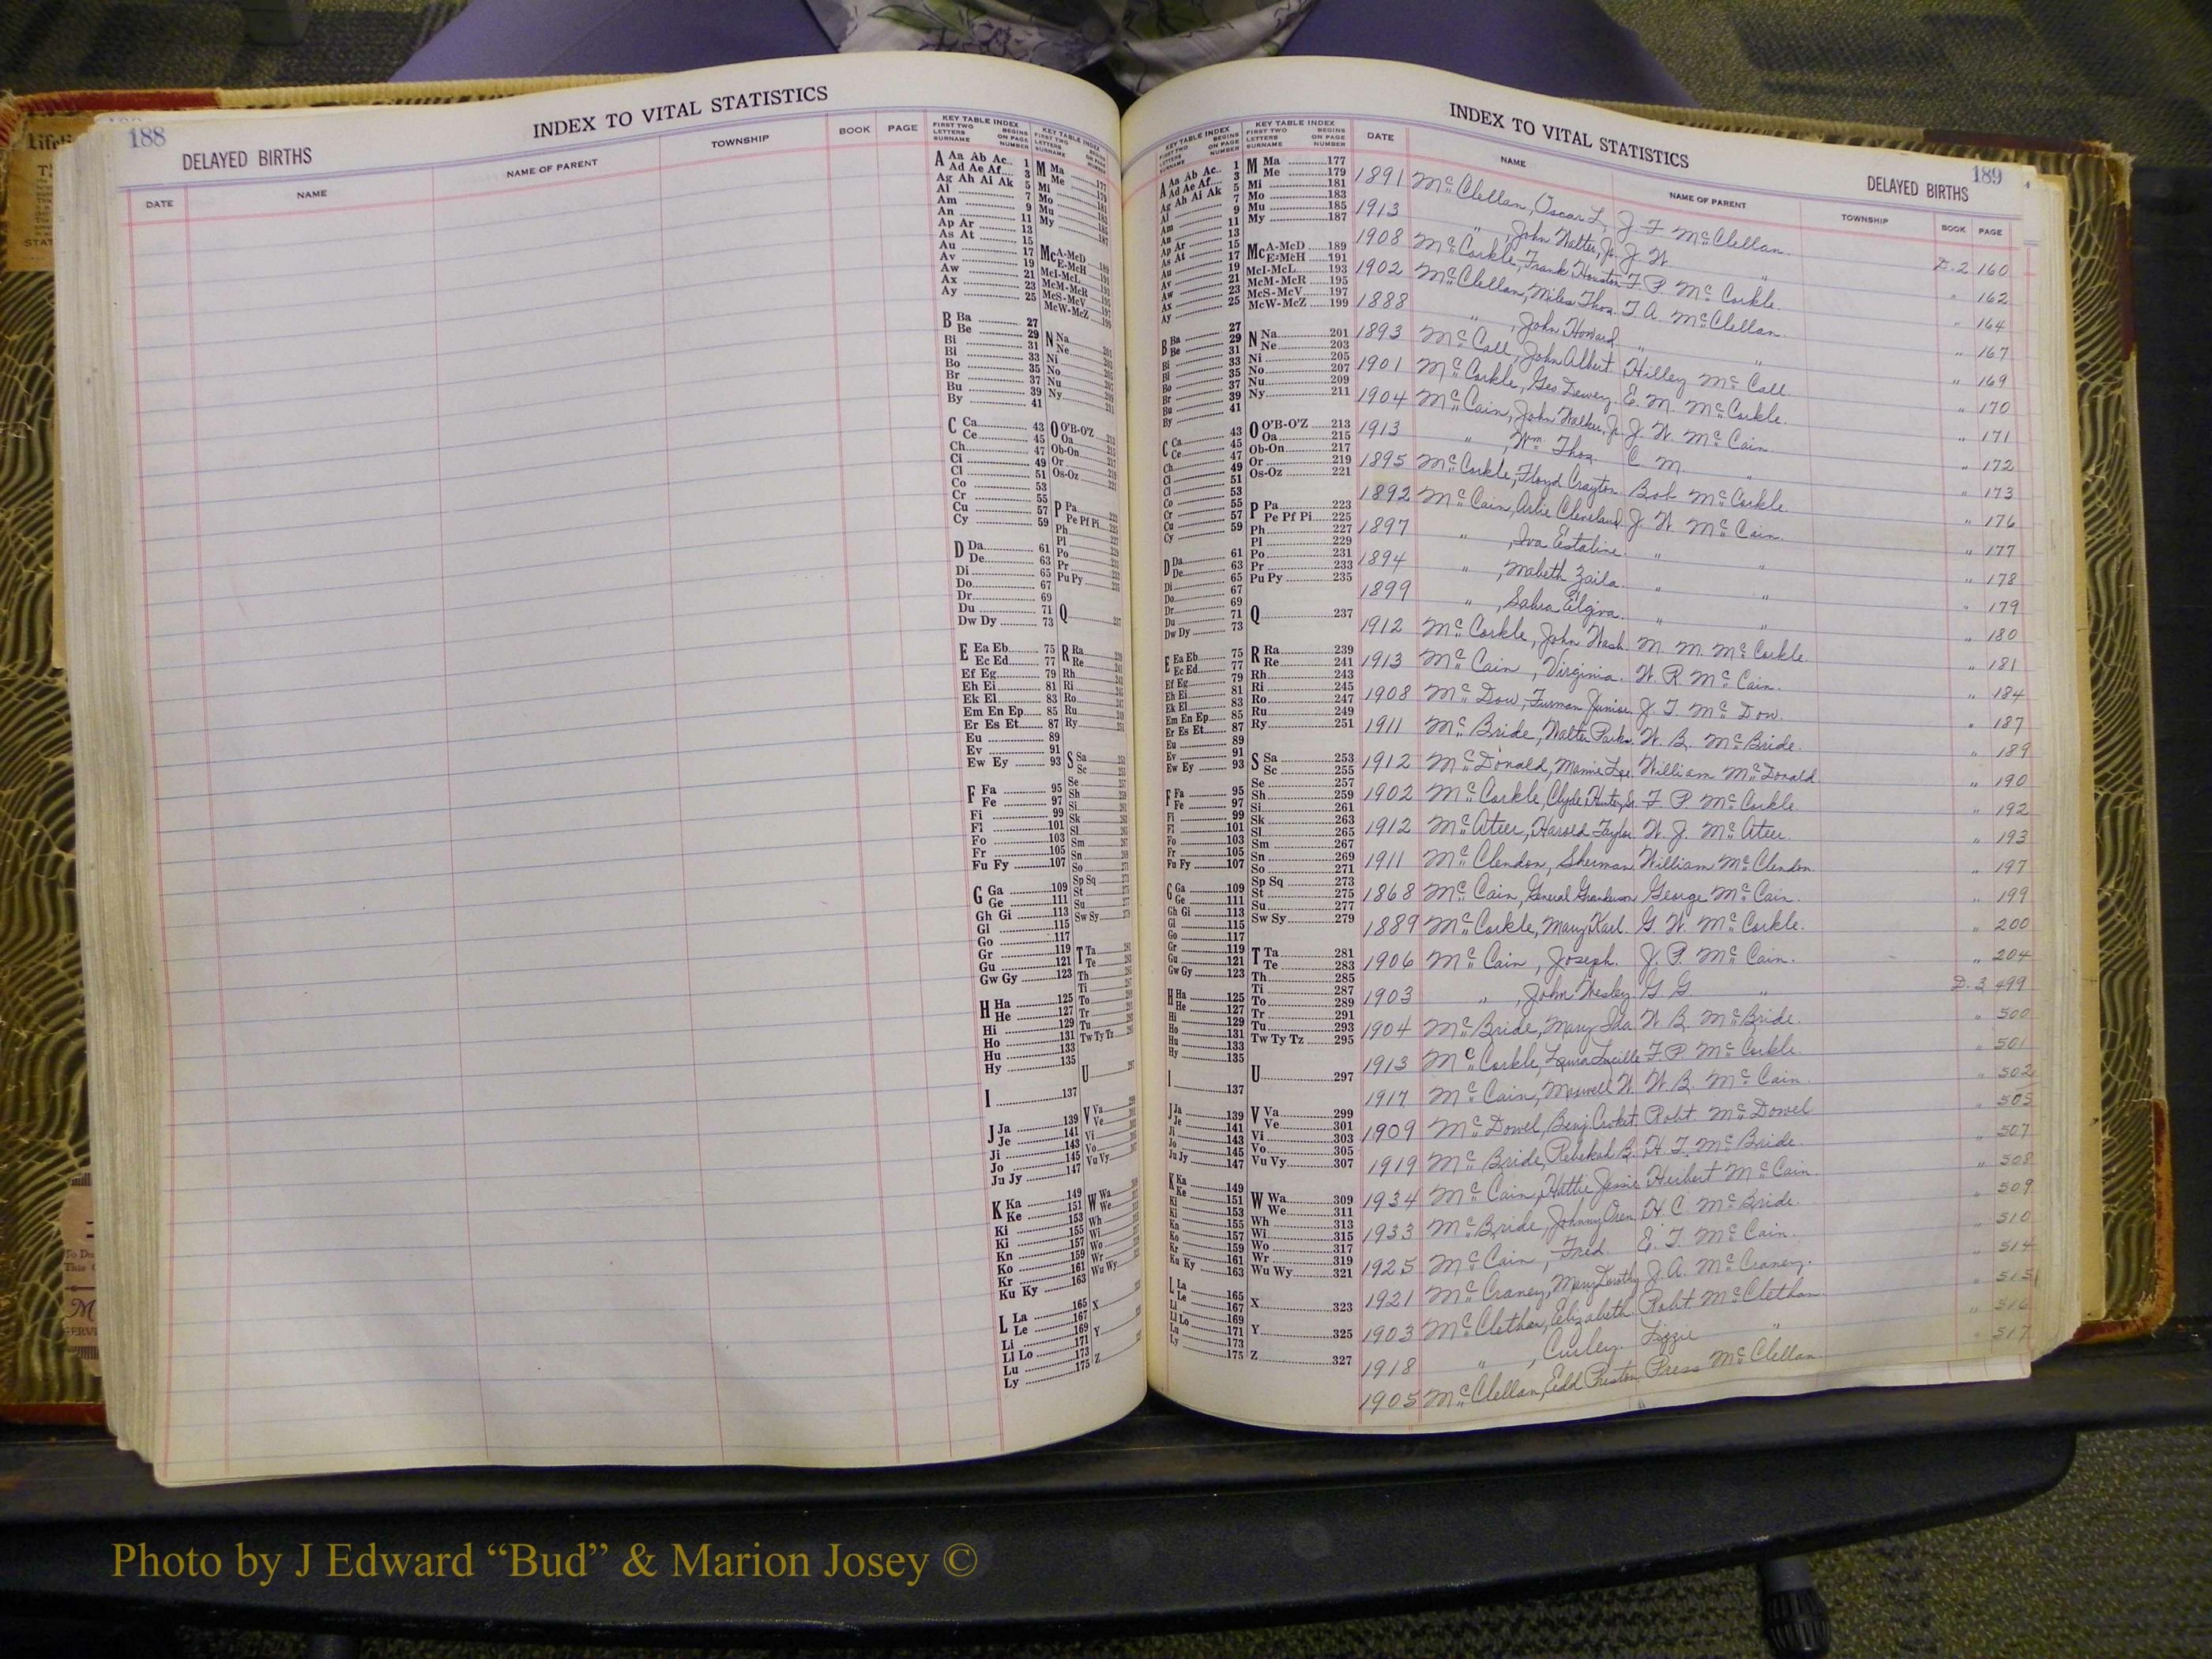 188
INDEX TO VITAL STATISTICS
DELAYED BIRTHS
DATE NAME NAME OF PARENT TOWNSHIP BOOK PAGE
KEY TABLE INDEX KEY TABLE INDEX
FIRST TWO LETTERS SURNAME BEGINS ON PAGE NUMBER
A Aa Ab Ac 1
Ad Ae Af 3
Ag Ah Ai Ak 5
Al 7
Am 9
An 11
Ap Ar 13
As At 15
Au 17
Av 19
Aw 21
Ax 23
Ay 25
B Ba 27
Be 29
Bi 31
Bl 33
Bo 35
Br 37
Bu 39
By 41
C Ca 43
Ce 45
Ch 47
Ci 49
Cl 51
Co 53
Cr 55
Cu 57
Cy 59
D Da 61
De 63
Di 65
Do 67
Dr 69
Du 71
Dw Dy 73
E Ea Eb 75
Ec Ed 77
Ef Eg 79
Eh Ei 81
Ek El 83
Em En Ep 85
Er Es Et 87
Eu 89
Ev 91
Ew Ey 93
F Fa 95
Fe 97
Fi 99
Fl 101
Fo 103
Fr 105
Fu Fy 107
G Ga 109
Ge 111
Gh Gi 113
Gl 115
Go 117
Gr 119
Gu 121
Gw Gy 123
H Ha 125
He 127
Hi 129
Ho 131
Hu 133
Hy 135
I 137
J Ja 139
Je 141
Ji 143
Jo 145
Ju Jy 147
K Ka 149
Ke 151
Ki 153
Ki 155
Kn 157
Ko 159
Kr 161
Ku Ky 163
L La 165
Le 167
Li 169
Ll Lo 171
Lu 173
Ly 175
189
INDEX TO VITAL STATISTICS
DELAYED BIRTHS
KEY TABLE INDEX KEY TABLE INDEX
FIRST TWO LETTERS SURNAME BEGINS ON PAGE NUMBER
M Ma 177
Me 179
Mi 181
Mo 183
Mu 185
My 187
Mc A-McD 189
E-McH 191
McI-McL 193
McM-McR 195
McS-McV 197
McW-McZ 199
N Na 201
Ne 203
Ni 205
No 207
Nu 209
Ny 211
O O'B-O'Z 213
Oa 215
Ob-On 217
Or 219
Os-Oz 221
P Pa 223
Pe Pf Pi 225
Ph 227
Pl 229
Po 231
Pr 233
Pu Py 235
Q 237
R Ra 239
Re 241
Rh 243
Ri 245
Ro 247
Ru 249
Ry 251
S Sa 253
Sc 255
Se 257
Sh 259
Si 261
Sk 263
Sl 265
Sm 267
Sn 269
So 271
Sp Sq 273
St 275
Su 277
Sw Sy 279
T Ta 281
Te 283
Th 285
Ti 287
To 289
Tr 291
Tu 293
Tw Ty Tz 295
U 297
V Va 299
Ve 301
Vi 303
Vo 305
Vu Vy 307
W Wa 309
We 311
Wh 313
Wi 315
Wo 317
Wr 319
Wu Wy 321
X 323
Y 325
Z 327
DATE NAME NAME OF PARENT TOWNSHIP BOOK PAGE
1891 McClellan, Oscar L. J. F. McClellan D.2 160
1913 " , John Walter, Jr. J. W. " " 162
1908 McCorkle, Frank Houston F. P. McCorkle " 164
1902 McClellan, Miles Thos. T. A. McClellan " 167
1888 " , John Howard " " " 169
1893 McCall, John Albert Hilley McCall " 170
1901 McCorkle, Geo Dewey E. M. McCorkle " 171
1904 McCain, John Walker, Jr. J. W. McCain " 172
1913 " , Wm. Thos. C. M. " " 173
1895 McCorkle, Floyd Crayton Bob McCorkle " 176
1892 McCain, Arlie Cleveland J. W. McCain " 177
1897 " , Iva Estaline " " " 178
1894 " , Mabeth Zaila " " " 179
1899 " , Salra Elgiva " " " 180
1912 McCorkle, John Wash M. M. McCorkle " 181
1913 McCain, Virginia W. R. McCain " 184
1908 McDow, Furman Junior J. T. McDow " 187
1911 McBride, Walter Parks W. B. McBride " 189
1912 McDonald, Mamie Lee William McDonald " 190
1902 McCorkle, Clyde Hunter, Sr. F. P. McCorkle " 192
1912 McAteer, Harold Taylor W. J. McAteer " 193
1911 McClendon, Sherman William McClendon " 197
1868 McCain, General Granderson George McCain " 199
1889 McCorkle, Mary Karl G. W. McCorkle " 200
1906 McCain, Joseph J. P. McCain " 204
1903 " , John Wesley G. G. " D.3 499
1904 McBride, Mary Ida W. B. McBride " 500
1913 McCorkle, Laura Lucille F. P. McCorkle " 501
1917 McCain, Maxwell W. W. B. McCain " 502
1909 McDowel, Benj. Croket Robt McDowel " 505
1919 McBride, Rebekah B. H. T. McBride " 507
1934 McCain, Hattie Jessie Herbert McCain " 508
1933 McBride, Johnny Oren H. C. McBride " 509
1925 McCain, Fred E. T. McCain " 510
1921 McCraney, Mary Dorothy J. A. McCraney " 514
1903 McClethan, Elizabeth Robt McClethan " 515
1918 " , Curley Lizzie " " 516
1905 McClellan, Edd Preston Press McClellan " 517
Photo by J Edward “Bud” & Marion Josey ©